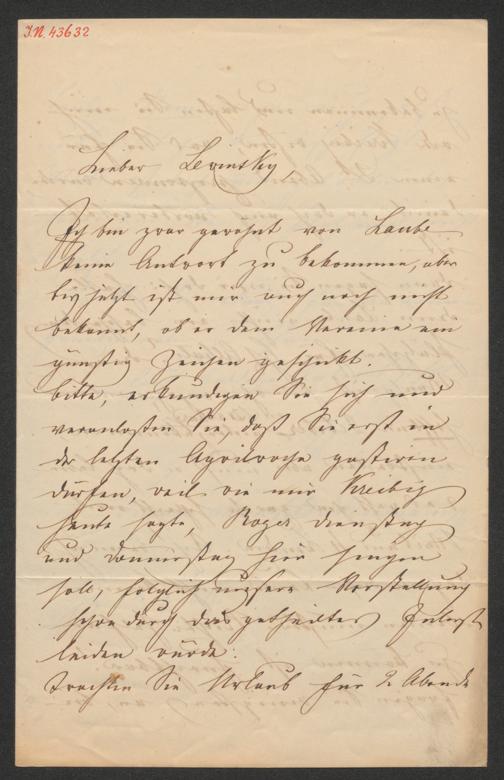 J.N. 43632
Lieber Lewinsky,
Ich bin zwar gewohnt von Laube
keine Antwort zu bekommen, aber
bis jetzt ist mir auch noch nicht
bekannt, ob er dem Vereine ein
günstig Zeichen geschickt.
bitte, erkundigen Sie sich und
veranlassen Sie, daß Sie erst in
der letzten Aprilwoche gastiren
dürfen, weil wie mir Kreibig
heute sagte, Roger Dienstag
und Donnerstag hier singen
soll, folglich unsere Vorstellung
schon durch das getheilte Interest
leiden würde.
Trachten Sie Urlaub für 2 Abende